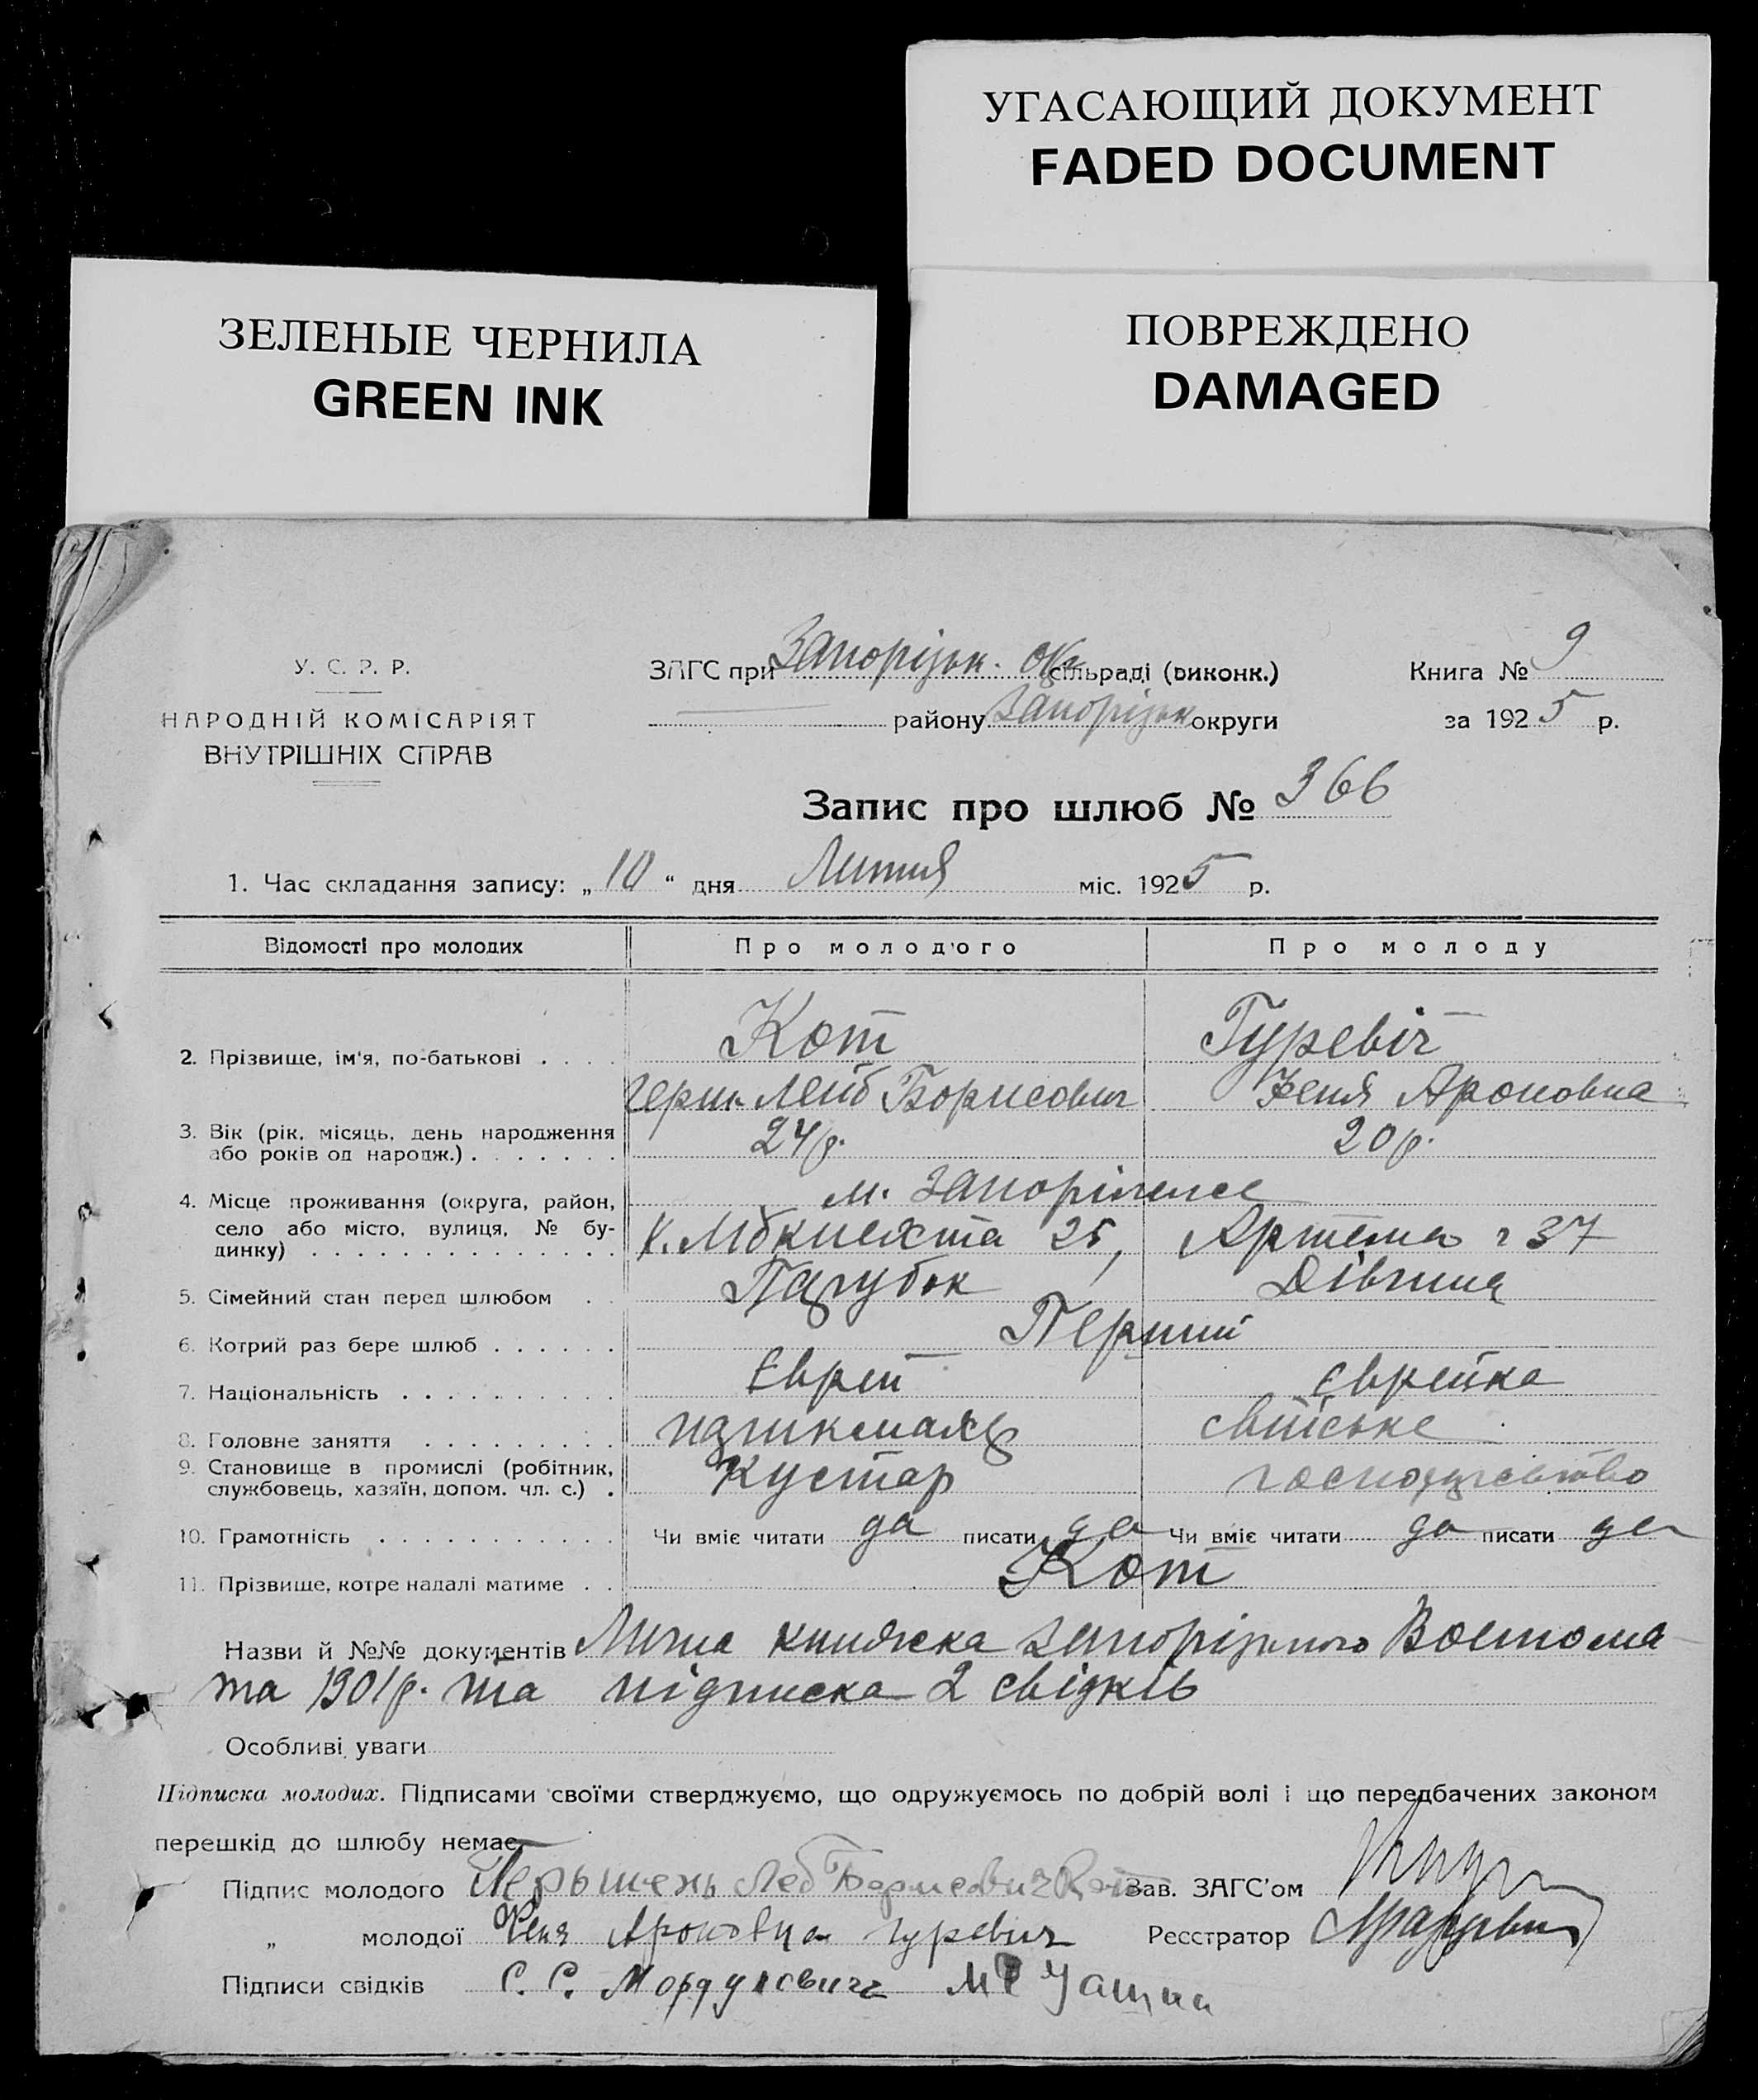 УГАСАЮЩИЙ ДОКУМЕНТ
FADED DOCUMENT
ЗЕЛЕНЫЕ ЧЕРНИЛА
GREEN INK
ПОВРЕЖДЕНО
DAMAGED
У. С. Р. Р.
НАРОДНІЙ КОМІСАРІЯТ
ВНУТРІШНІХ СПРАВ
ЗАГС при Запорізьк. окр сільраді (виконк.)
району Запорізьк округи
Книга № 9
за 1925 р.
Запис про шлюб № 366
1. Час складання запису: „10“ дня Липня міс. 1925 р.
Відомості про молодих Про молодого Про молоду
2. Прізвище, ім'я, по-батькові . . . Кот Гуревіч
Герш Лейб Борисович Феня Ароновна
3. Вік (рік, місяць, день народження або років од народж.) . . . . . . . 24р. 20р.
4. Місце проживання (округа, район, село або місто, вулиця, № будинку) . . . . . . . м. Запоріжже
К. Лібкнехта 25, Артема 37
5. Сімейний стан перед шлюбом . . Парубок Дівчина
6. Котрий раз бере шлюб . . . . . . Перший
7. Національність . . . . . . . . . . Єврей Єврейка
8. Головне заняття . . . . . . . . . свійське
9. Становище в промислі (робітник, службовець, хазяїн, допом. чл. с.) . Кустар господарство
10. Грамотність . . . . . . . . . . . Чи вміє читати да писати да Чи вміє читати да писати да
11. Прізвище, котре надалі матиме . . Кот
Назви й №№ документів Лична книжка Запорізького Воєнкома
та 1901р. та підписка 2 свідків
Особливі уваги
Підписка молодих. Підписами своїми стверджуємо, що одружуємось по добрій волі і що передбачених законом
перешкід до шлюбу немає.
Підпис молодого Леб Борисович Кот Зав. ЗАГС'ом
„ молодої Феня Ароновна Гуревич Реєстратор
Підписи свідків С. С. Мордухович